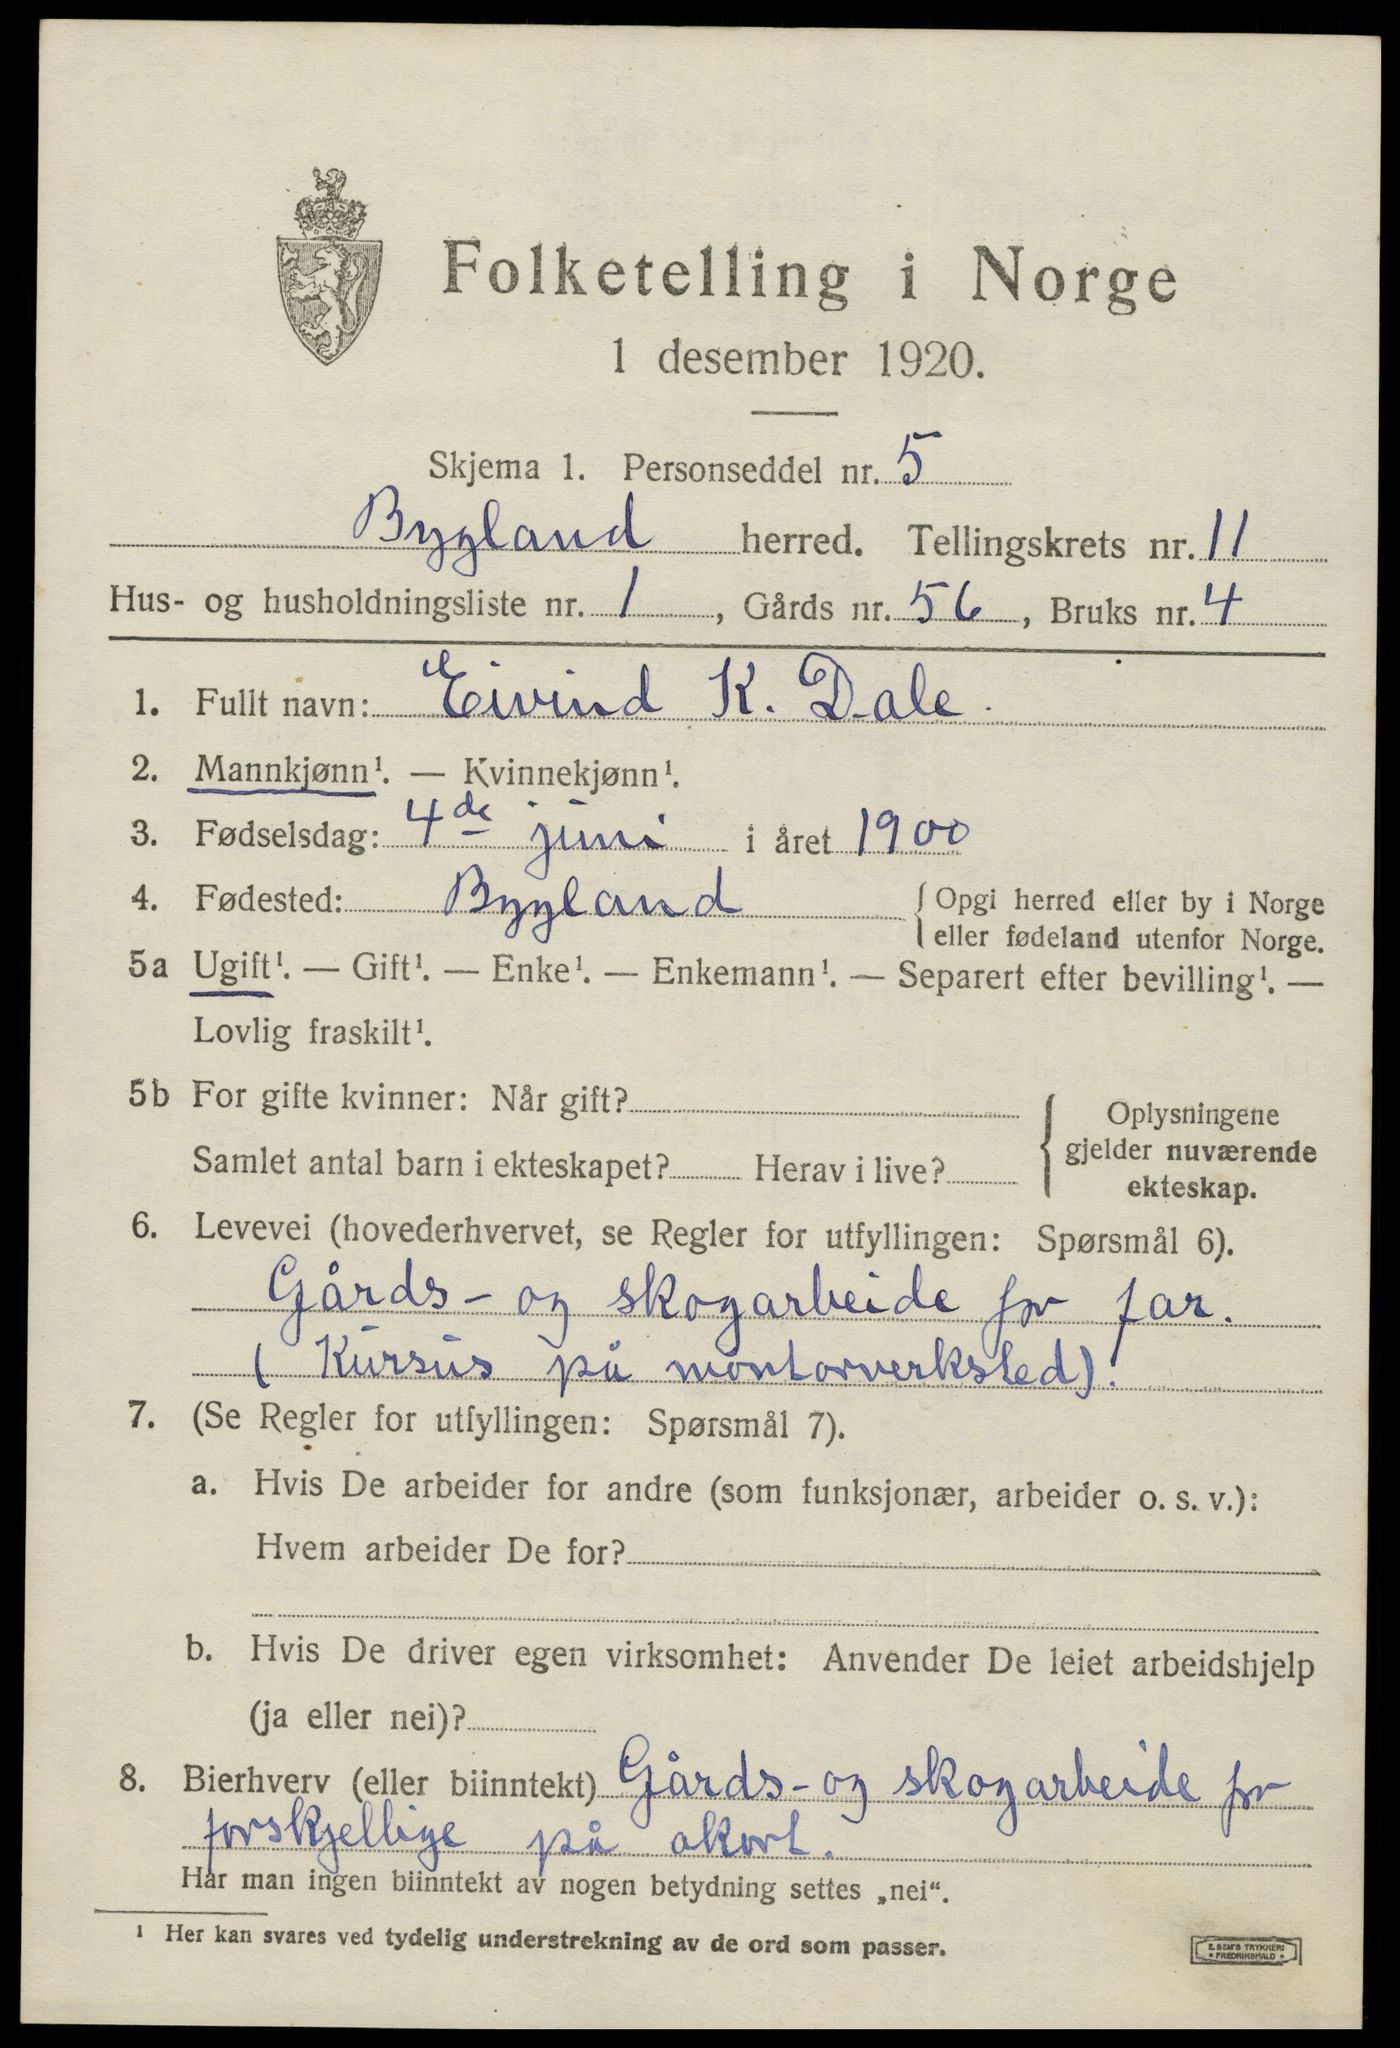 Folketelling i Norge
1 desember 1920.
Skjema 1. Personseddel nr. 5
Bygland herred. Tellingskrets nr. 11
Hus- og husholdningsliste nr. 1, Gårds nr. 56, Bruks nr. 4
1. Fullt navn: Eivind K. Dale.
2. Mannkjønn¹. — Kvinnekjønn¹.
3. Fødselsdag: 4de juni i året 1900
4. Fødested: Bygland { Opgi herred eller by i Norge
eller fødeland utenfor Norge.
5a Ugift¹. — Gift¹. — Enke¹. — Enkemann¹. — Separert efter bevilling¹. —
Lovlig fraskilt¹.
5b For gifte kvinner: Når gift?
Samlet antal barn i ekteskapet? Herav i live?
{ Oplysningene
gjelder nuværende
ekteskap.
6. Levevei (hovederhvervet, se Regler for utfyllingen: Spørsmål 6).
Gårds- og skogarbeide for far.
( Kursus på montorverksted).
7. (Se Regler for utfyllingen: Spørsmål 7).
a. Hvis De arbeider for andre (som funksjonær, arbeider o. s. v.):
Hvem arbeider De for?
b. Hvis De driver egen virksomhet: Anvender De leiet arbeidshjelp
(ja eller nei)?
8. Bierhverv (eller biinntekt) Gårds- og skogarbeide for
forskjellige på akort.
Har man ingen biinntekt av nogen betydning settes „nei“.
¹ Her kan svares ved tydelig understrekning av de ord som passer.
E. SEM'S TRYKKERI
• FREDRIKSHALD •